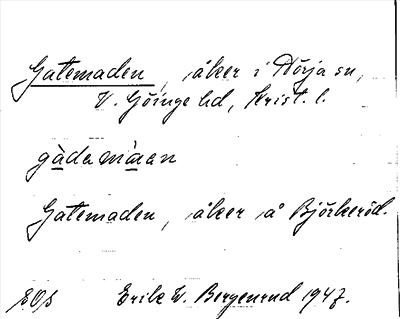 Gatemaden, åker i Nörja sn,
V. Göinge hd, Krist. l.
gàdamàan
Gatemaden, åker å Björkeröd.
Erik W. Bergenrud 1947.